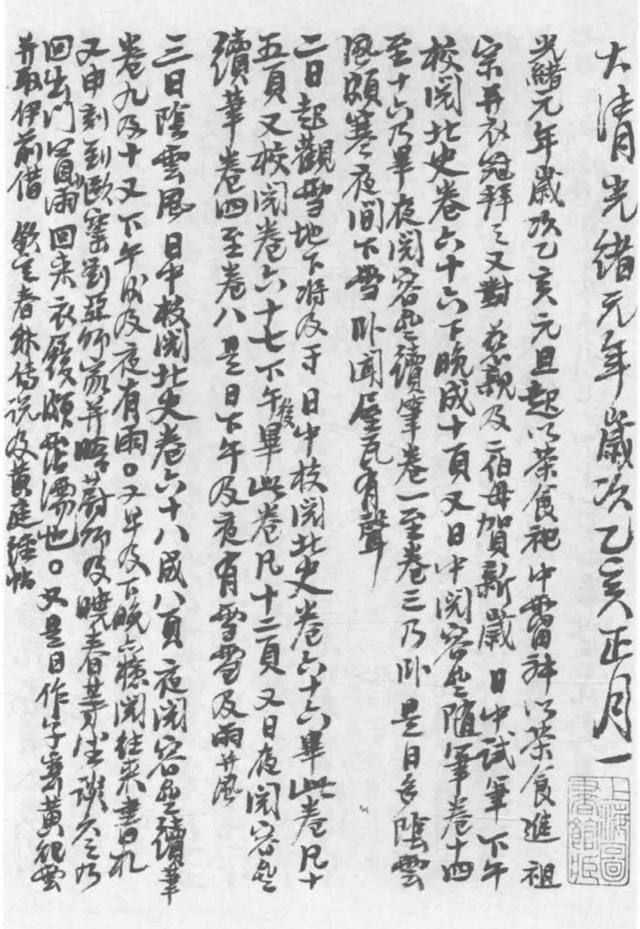 大清光緒元年歲次乙亥正月一
光緒元年歲次乙亥元旦起以茶食祀中霤神以茶食進 祖
宗并衣冠拜之又對 慈親及二伯母賀新歲 日中試筆下午
校閱北史卷六十六下晚成十頁又日中閱容齋隨筆卷十四
至十六乃畢夜閱容齋續筆卷一至卷三乃卧 是日多陰雲
風頗寒夜間下雪 卧聞屋瓦有聲
二日起觀雪地下將及寸 日中校閱北史卷六十六畢此卷凡十
五頁又校閱卷六十七下午後畢此卷凡十二頁 又日夜閱容齋
續筆卷四至卷八 是日下午及夜有雪雪及雨并風
三日陰雲風 日中校閱北史卷六十八成八頁 夜閱容齋續筆
卷九及十又下午後及夜有雨。又早及下晚亦檢閱往來書札
又申刻到 劉 師家并晤 師及曉春等坐談久之乃
回出門買 雨回來衣 頗 濡也。又是日作字 黃
并取伊前借 欽定春秋傳說及黃庭經帖
上海圖書館藏